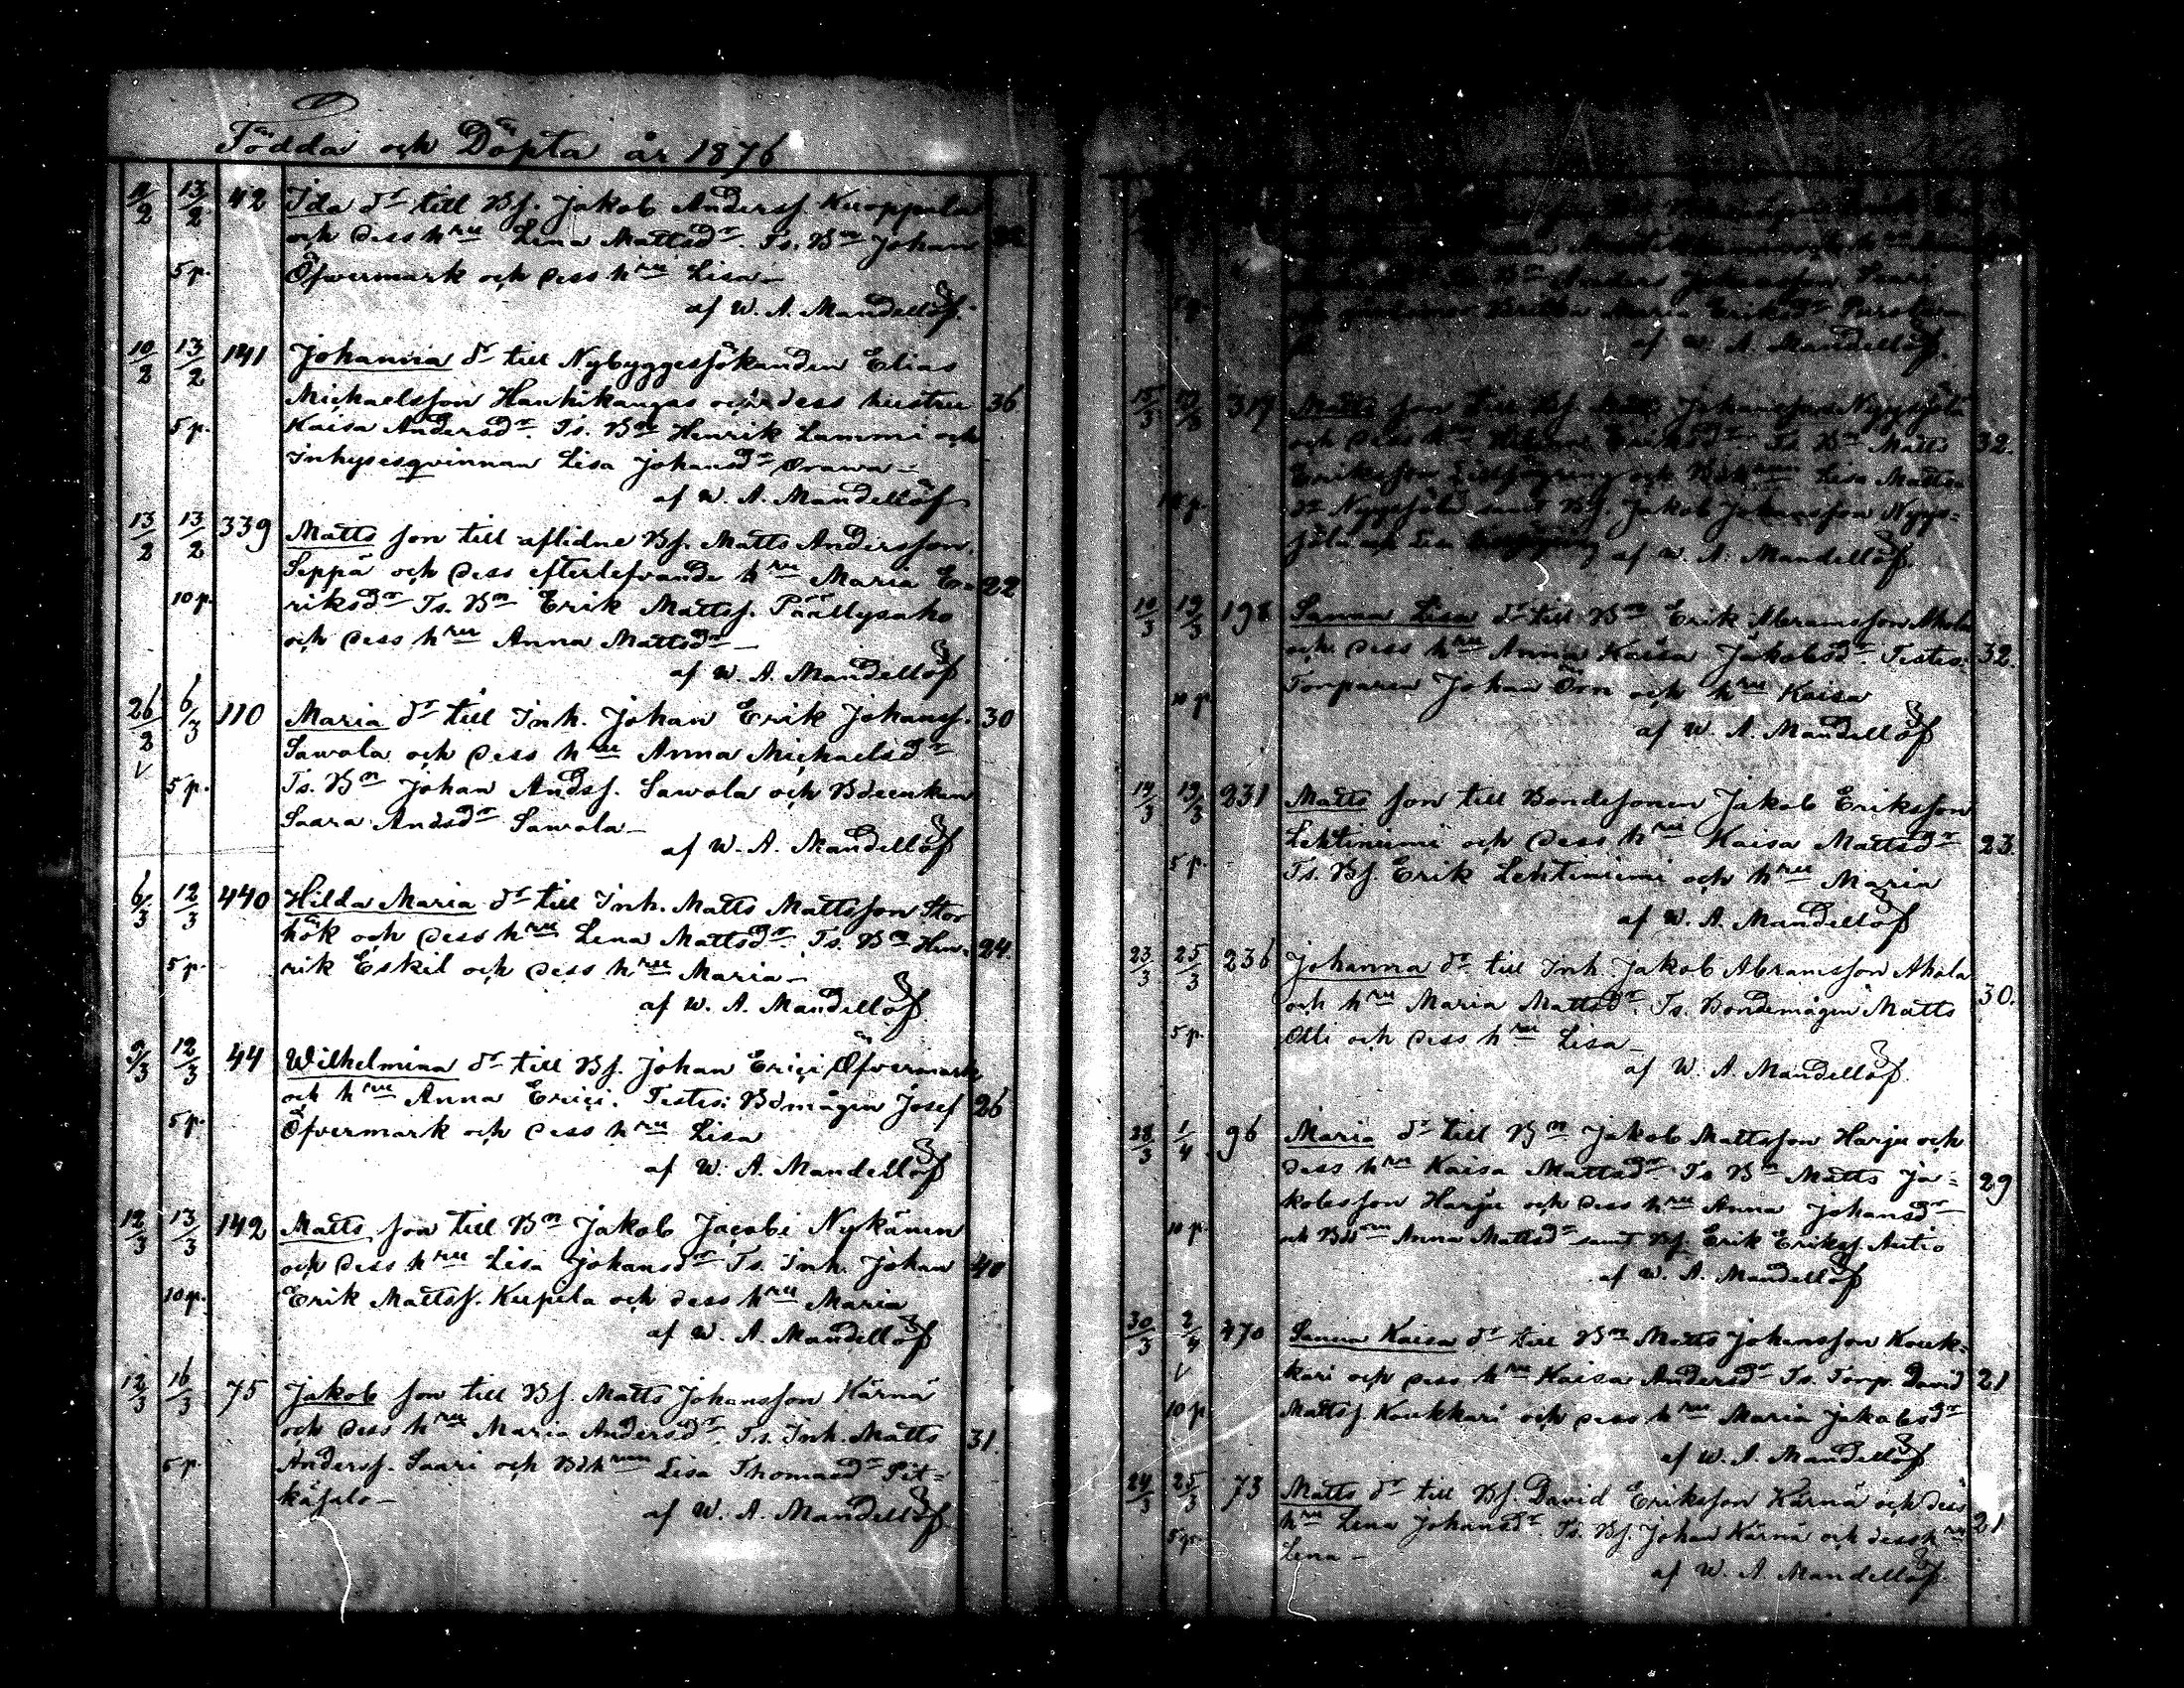 Födda och Döpta år 1876
11/2 13/2 42 Ida dr till Bs. Jakob Anderss. Kuoppala
och dess hru Lena Mattsdr. Ts. Bn Johan
5 p. Öfvermark och dess hru Lisa —
af W. A. Mandellöf
10/2 13/2 141 Johanna dr till Nybyggessökanden Elias
Michaelsson Hauhikangas och dess hustru 36
5 p. Kaisa Andersdr. Ts. Bn Henrik Lammi och
Inhysesqvinnan Lisa Johansdr Orawa —
af W. A. Mandellöf
13/2 13/2 339 Matts son till aflidne Bs. Matts Andersson
Seppä och dess efterlefvande hru Maria E= 22
10 p. riksdr Ts. Bn Erik Mattss. Päällysaho
och dess hru Anna Mattsdr —
af W. A. Mandellöf
26/2 6/3 110 Maria dr till Inh. Johan Erik Johanss. 30
Sawola och dess hru Anna Michaelsdr
5 p. Ts. Bn Johan Andss. Sawola och
Saara Andsdr Sawola —
af W. A. Mandellöf
6/3 12/3 440 Hilda Maria dr till Inh. Matts Mattsson Stor
hök och dess hru Lena Mattsdr. Ts. Bn Hen= 24.
5 p. rik Eskil och dess hru Maria —
af W. A. Mandellöf
9/3 12/3 44 Wilhelmina dr till Bs. Johan Eriçi Öfvermark
och hru Anna Eriçi. Testes: Bdmågen Josef 26
5 p. Öfvermark och dess hru Lisa
af W. A. Mandellöf
12/3 13/3 142 Matts son till Bn Jakob Jaçobi Nykänen
och dess hru Lisa Johansdr Ts. Inh. Johan 40
10 p. Erik Mattss. Kupila och dess hru Maria
af W. A. Mandellöf
12/3 16/3 75 Jakob son till Bs. Matts Johansson Kärnä
och dess hru Maria Andersdr. Ts. Inh. Matts 31.
5 p. Anderss. Saari och Bdhrun Lisa Thomasdr Pit=
käsalo — af W. A. Mandellöf
Bn Anders Johansson Saari
Maria Eriksdr
af W. A. Mandellöf
15/3 319 Matts son till Bs. Johansson Nygsjölä
och dess hru Eriksdr Ts. Bn Matts 32.
Eriksson och Lisa Matts=
dr Nygsjölä samt Bs. Jakob Johansson Nygs=
jölä och Lisa af W. A. Mandellöf
19/3 198 Sanna Lisa dr till Bn Erik Abramsson Ahola
och dess hru Anna Kaisa Jakobsdr. Testes: 32.
10 p Torparen Johan Orn och hru Kaisa
af W. A. Mandellöf
19/3 19/3 231 Matts son till Bondesonen Jakob Eriksson
Lehtiniemi och dess hru Kaisa Mattsdr 23.
5 p. Ts. Bs. Erik Lehtiniemi och hru Maria
af W. A. Mandellöf
23/3 25/3 236 Johanna dr till Inh. Jakob Abramsson Ahola
och hru Maria Mattsdr. Ts. Bondemågen Matts 30.
5 p. Olli och dess hru Lisa —
af W. A. Mandellöf
28/3 1/4 96 Maria dr till Bn Jakob Mattsson Harju och
dess hru Kaisa Mattsdr Ts Bn Matts Ja= 29
kobsson Harju och dess hru Anna Johansdr
10 p. och Anna Mattsdr samt Bs. Erik Erikss Autio
af W. A. Mandellöf
30/3 2/4 470 Sanna Kaisa dr till Bn Matts Johansson Kouk=
kari och dess hru Kaisa Andersdr Ts. Torp. David 21
10 p Mattss. Koukkari och dess hru Maria Jakobsdr
af W. A. Mandellöf
24/3 25/3 73 Matts dr till Bs. David Eriksson Kärnä och dess
hru Lena Johansdr. Ts. Bs. Johan Kärnä och dess hru 21
5 p. Lena —
af W. A. Mandellöf